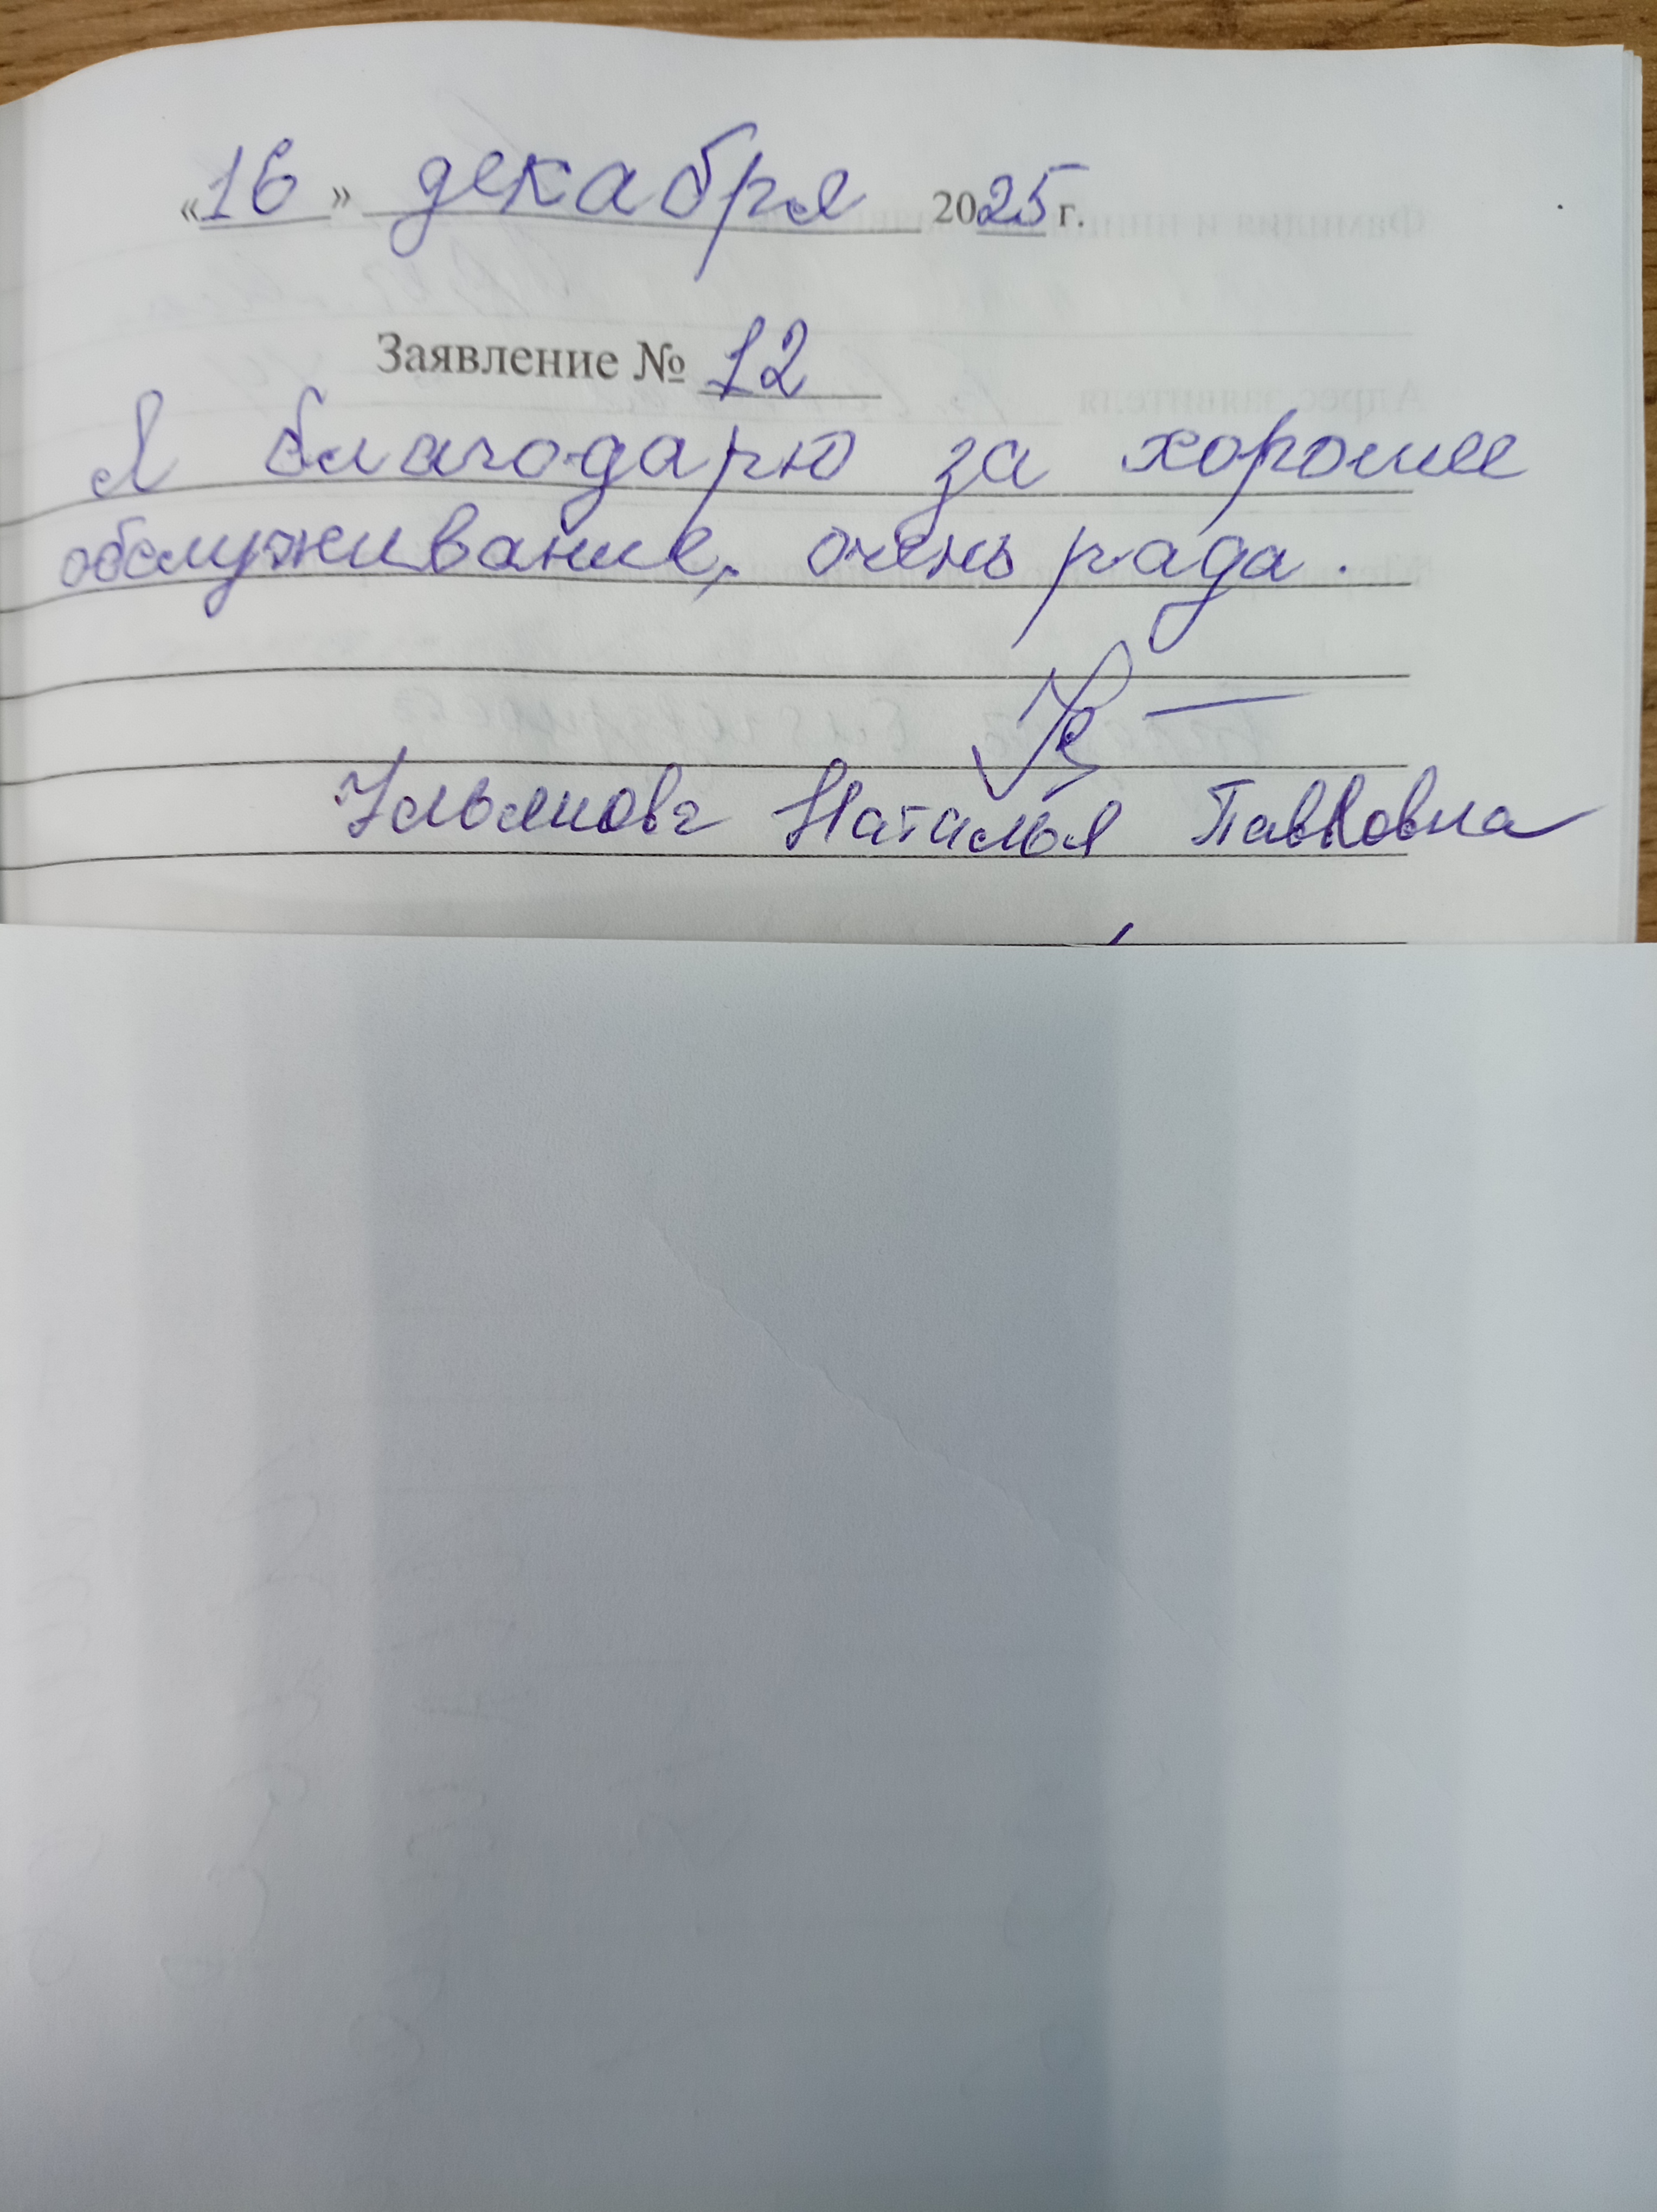 «16» декабря 2025 г.
Заявление № 12
Я благодарю за хорошее
обслуживание, очень рада.
Ульянова Наталья Павловна